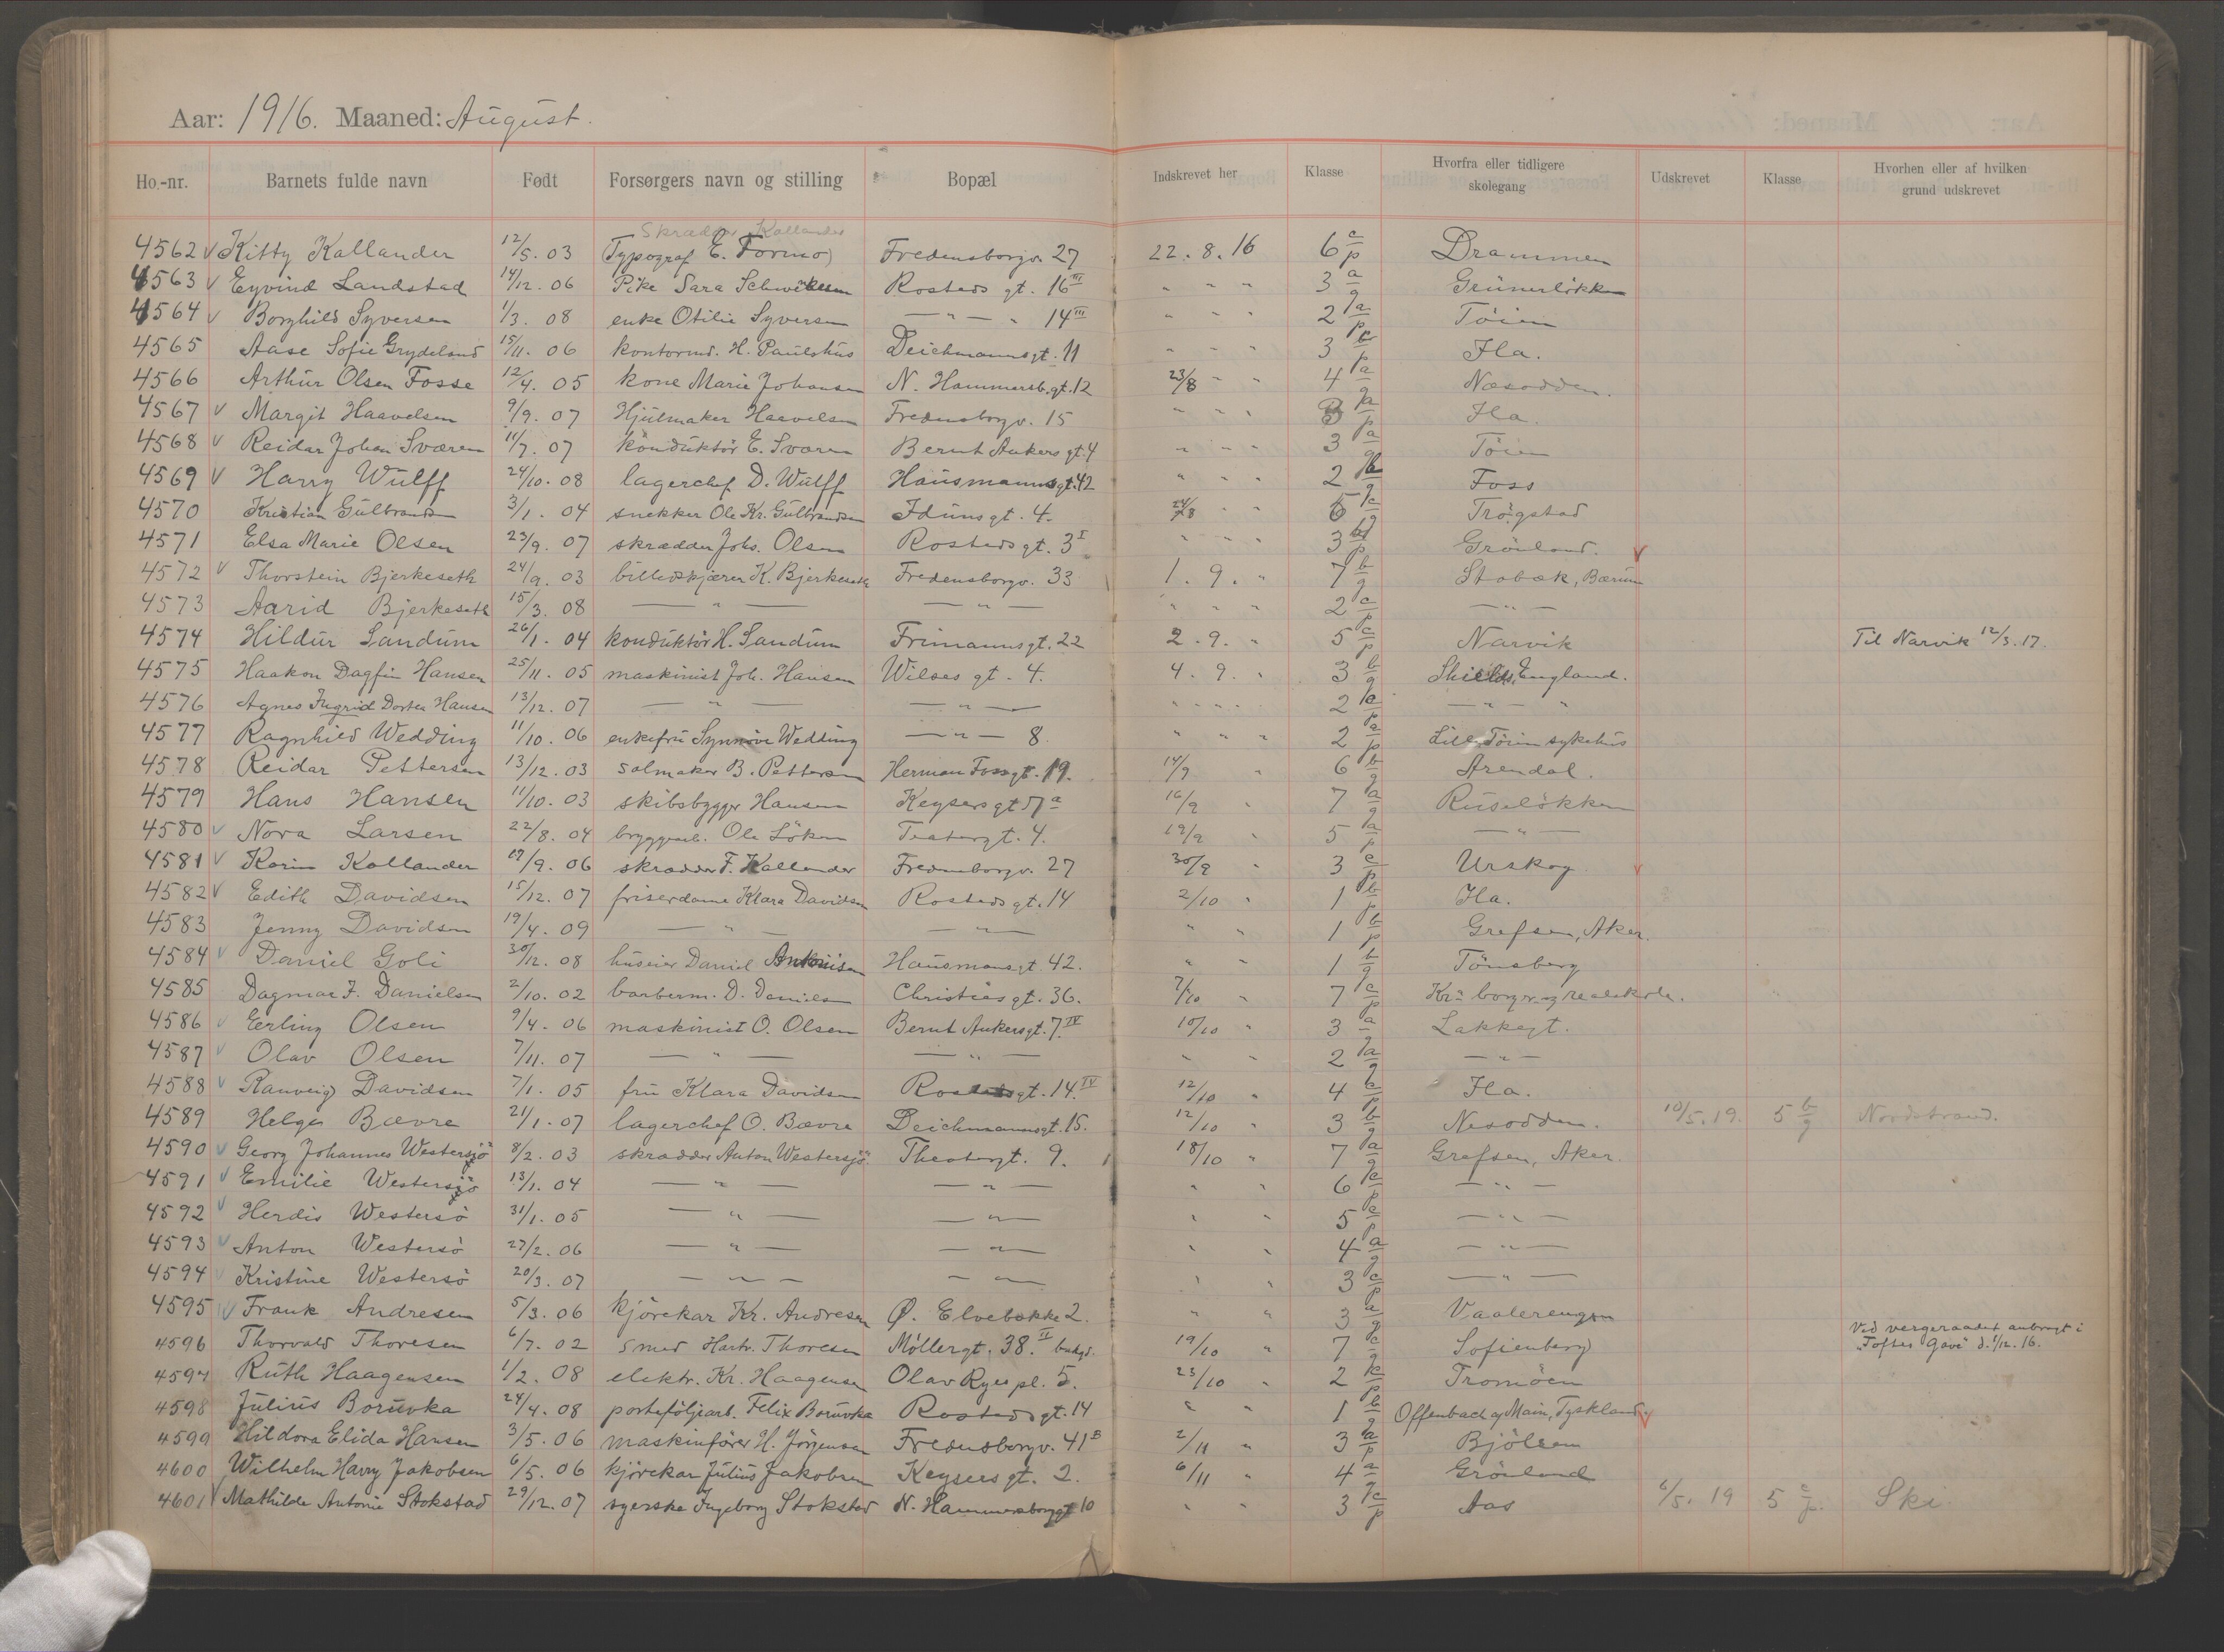 Aar: 1916. Maaned: August.
Ho.-nr. Barnets fulde navn Født Forsørgers navn og stilling Bopæl Indskrevet her Klasse Hvorfra eller tidligere skolegang Udskrevet Klasse Hvorhen eller af hvilken grund udskrevet
Skrædder Kallander
4562 v Kitty Kallander 12/5. 03 (Typograf E. Formo) Fredensborgv. 27 22. 8. 16 6 c/p Drammen
4563 v Eyvind Landstad 14/12. 06 Pike Sara Rosteds gt. 16 III " " " 3 a/g Grünerløkken
4564 v Borghild Syversen 1/3. 08 enke Otilie Syversen — " — " 14 III " " " 2 a/p Töien
4565 Aase Sofie Grydeland 15/11. 06 kontormd. H. Paulshus Deichmannsgt. 11 " " " 3 /p Ila.
4566 Arthur Olsen Fosse 12/4. 05 kone Marie Johansen N. Hammersb.gt. 12 23/8 " " 4 a/g Næsodden.
4567 v Margit Haavelsen 9/9. 07 Hjulmaker Haavelsen Fredensborgv. 15 " " " 3 a/p Ila.
4568 v Reidar Johan Sværen 11/7. 07 konduktör E. Sværen Bernt Ankers gt. 4 " " " 3 a/g Töien
4569 v Harry Wulff 24/10. 08 lagerchef D. Wulff Hausmannsgt. 42 " " " 2 b/g Foss
4570 Kristian Gulbrandsen 3/1. 04 snekker Ole Kr. Gulbrandsen Idunsgt. 4. 24/8 " " c/g Trögstad
4571 Elsa Marie Olsen 23/9. 07 skrædder Johs. Olsen Rosteds gt. 3 I " " " 3 /p Grönland. v
4572 v Thorstein Bjerkeseth 24/9. 03 billedskjærer K. Bjerkeseth Fredensborgv. 33 1. 9. " 7 b/g Stabæk, Bærum
4573 Aarid Bjerkeseth 15/3. 08 — " — — " — " " " 2 c/p — " —
4574 Hildur Sandum 26/1. 04 konduktör H. Sandum Frimannsgt. 22 2. 9. " 5 c/p Narvik Til Narvik 12/3. 17.
4575 Haakon Dagfin Hansen 25/11. 05 maskinist Joh. Hansen Wilses gt. 4. 4. 9. " 3 b/g Shields, England.
4576 Agnes Ingrid Dortea Hansen 13/12. 07 — " — — " — " " " " 2 c/p — " — "
4577 Ragnhild Wedding 11/10. 06 enkefru Synnöve Wedding — " — 8. " " " 2 a/p Lille Töien sykehus
4578 Reidar Pettersen 13/12. 03 salmaker B. Pettersen Herman Fossgt. 19. 14/9 " 6 b/g Arendal.
4579 Hans Hansen 11/10. 03 skibsbygger Hansen Keysers gt 7 a 16/9 " 7 a/g Ruselökken
4580 v Nora Larsen 22/8. 04 bryggearb. Ole Löken Teatergt. 4. 19/9 " 5 a/p — " —
4581 v Karin Kallander /9. 06 skrædder F. Kallander Fredensborgv. 27 30/9 " 3 c/p Urskog v
4582 v Edith Davidsen 15/12. 07 friserdame Klara Davidsen Rosteds gt. 14 2/10 " 1 b/p Ila.
4583 Jenny Davidsen 19/4. 09 — " — — " — " " 1 b/p Grefsen, Aker.
4584 v Daniel Goli 30/12. 08 huseier Daniel Antonisen Hausmansgt. 42. " " 1 b/g Tönsberg
4585 Dagmar F. Danielsen 2/10. 02 barberm. D. Danielsen Christies gt. 36. 7/10 " 7 c/p Kr.a borger- og realskole.
4586 v Erling Olsen 9/4. 06 maskinist O. Olsen Bernt Ankersgt. 7. IV 10/10 " 3 a/g Lakkegt.
4587 v Olav Olsen 7/11. 07 — " — — " — " " 2 a/g — " —
4588 v Ranveig Davidsen 7/1. 05 fru Klara Davidsen Rostedsgt. 14. IV 12/10 " 4 /p Ila.
4589 Helge Bævre 21/1. 07 lagerchef O. Bævre Deichmannsgt. 15. 12/10 " 3 b/g Nesodden. 10/5. 19. 5 b/g Nordstrand.
4590 v Georg Johannes Westersjö 8/2. 03 skrædder Anton Westersjö Theatergt. 9. 18/10 " 7 a/g Grefsen, Aker.
4591 v Emilie Westersjö 13/1. 04 — " — — " — " " 6 c/p — " —
4592 v Herdis Westersö 31/1. 05 — " — — " — " " 5 c/p — " —
4593 v Anton Westersö 27/2. 06 — " — — " — " " 4 a/g — " —
4594 v Kristine Westersö 20/3. 07 — " — — " — " " 3 c/p — " —
4595 v Frank Andresen 5/3. 06 kjörekar Kr. Andresen Ø. Elvebakke 2. " " 3 a/g Vaalerengen
4596 Thorvald Thoresen 6/7. 02 smed Hartv. Thoresen Møllergt. 38. II bakgd. 19/10 " 7 c/g Sofienberg Ved vergeraadet anbragt i "Toftes Gave" d. 1/12. 16.
4597 Ruth Haagensen 1/2. 08 elektr. Kr. Haagensen Olav Ryes pl. 5. 23/10 " 2 c/p Tromöen
4598 Julius Boruvka 24/4. 08 porteföljearb. Felix Boruvka Rosteds gt. 14 " " 1 b/g Offenbach a/ Main, Tyskland. v
4599 Hildora Elida Hansen 3/5. 06 maskinförer H. Jörgensen Fredensborgv. 41 B 2/11 " 3 a/p Bjölsen
4600 Wilhelm Harry Jakobsen 6/5. 06 kjörekar Julius Jakobsen Keysers gt. 2. 6/11 " 4 a/g Grönland
4601 v Mathilde Antonie Stokstad 29/12. 07 syerske Ingeborg Stokstad N. Hammersborggt 10 " " 3 c/p Aas 6/5. 19 5 c/p. Ski